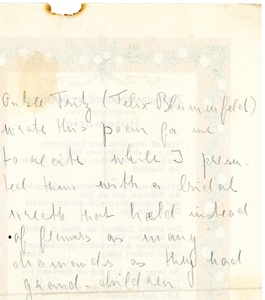 Onkel Fritz (Felix Blumenfeld)
wrote this poem for me
to recite while I presen-
ted them with a bridal
wreath that held instead
of flowers as many
diamonds as they had
grand-children